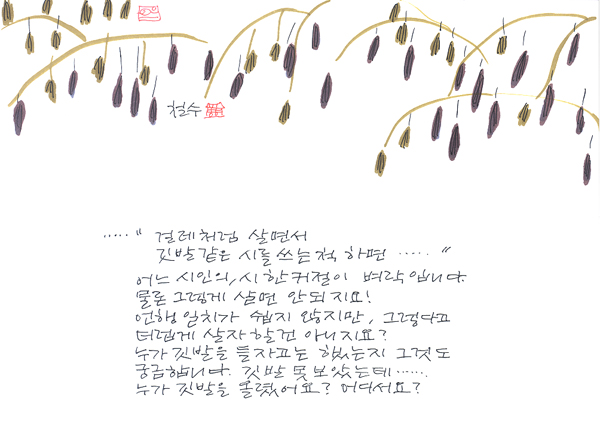 철수
····· " 걸레처럼 살면서
깃발같은 시를 쓰는 척 하면 ····· "
어느 시인의, 시 한 귀절이 벼락입니다.
물론 그렇게 살면 안되지요!
언행일치가 쉽지 않지만, 그렇다고
더럽게 살자 할건 아니지요?
누가 깃발을 들자고는 했는지 그것도
궁금합니다. 깃발 못 보았는데······
누가 깃발을 올렸어요? 어디서요?